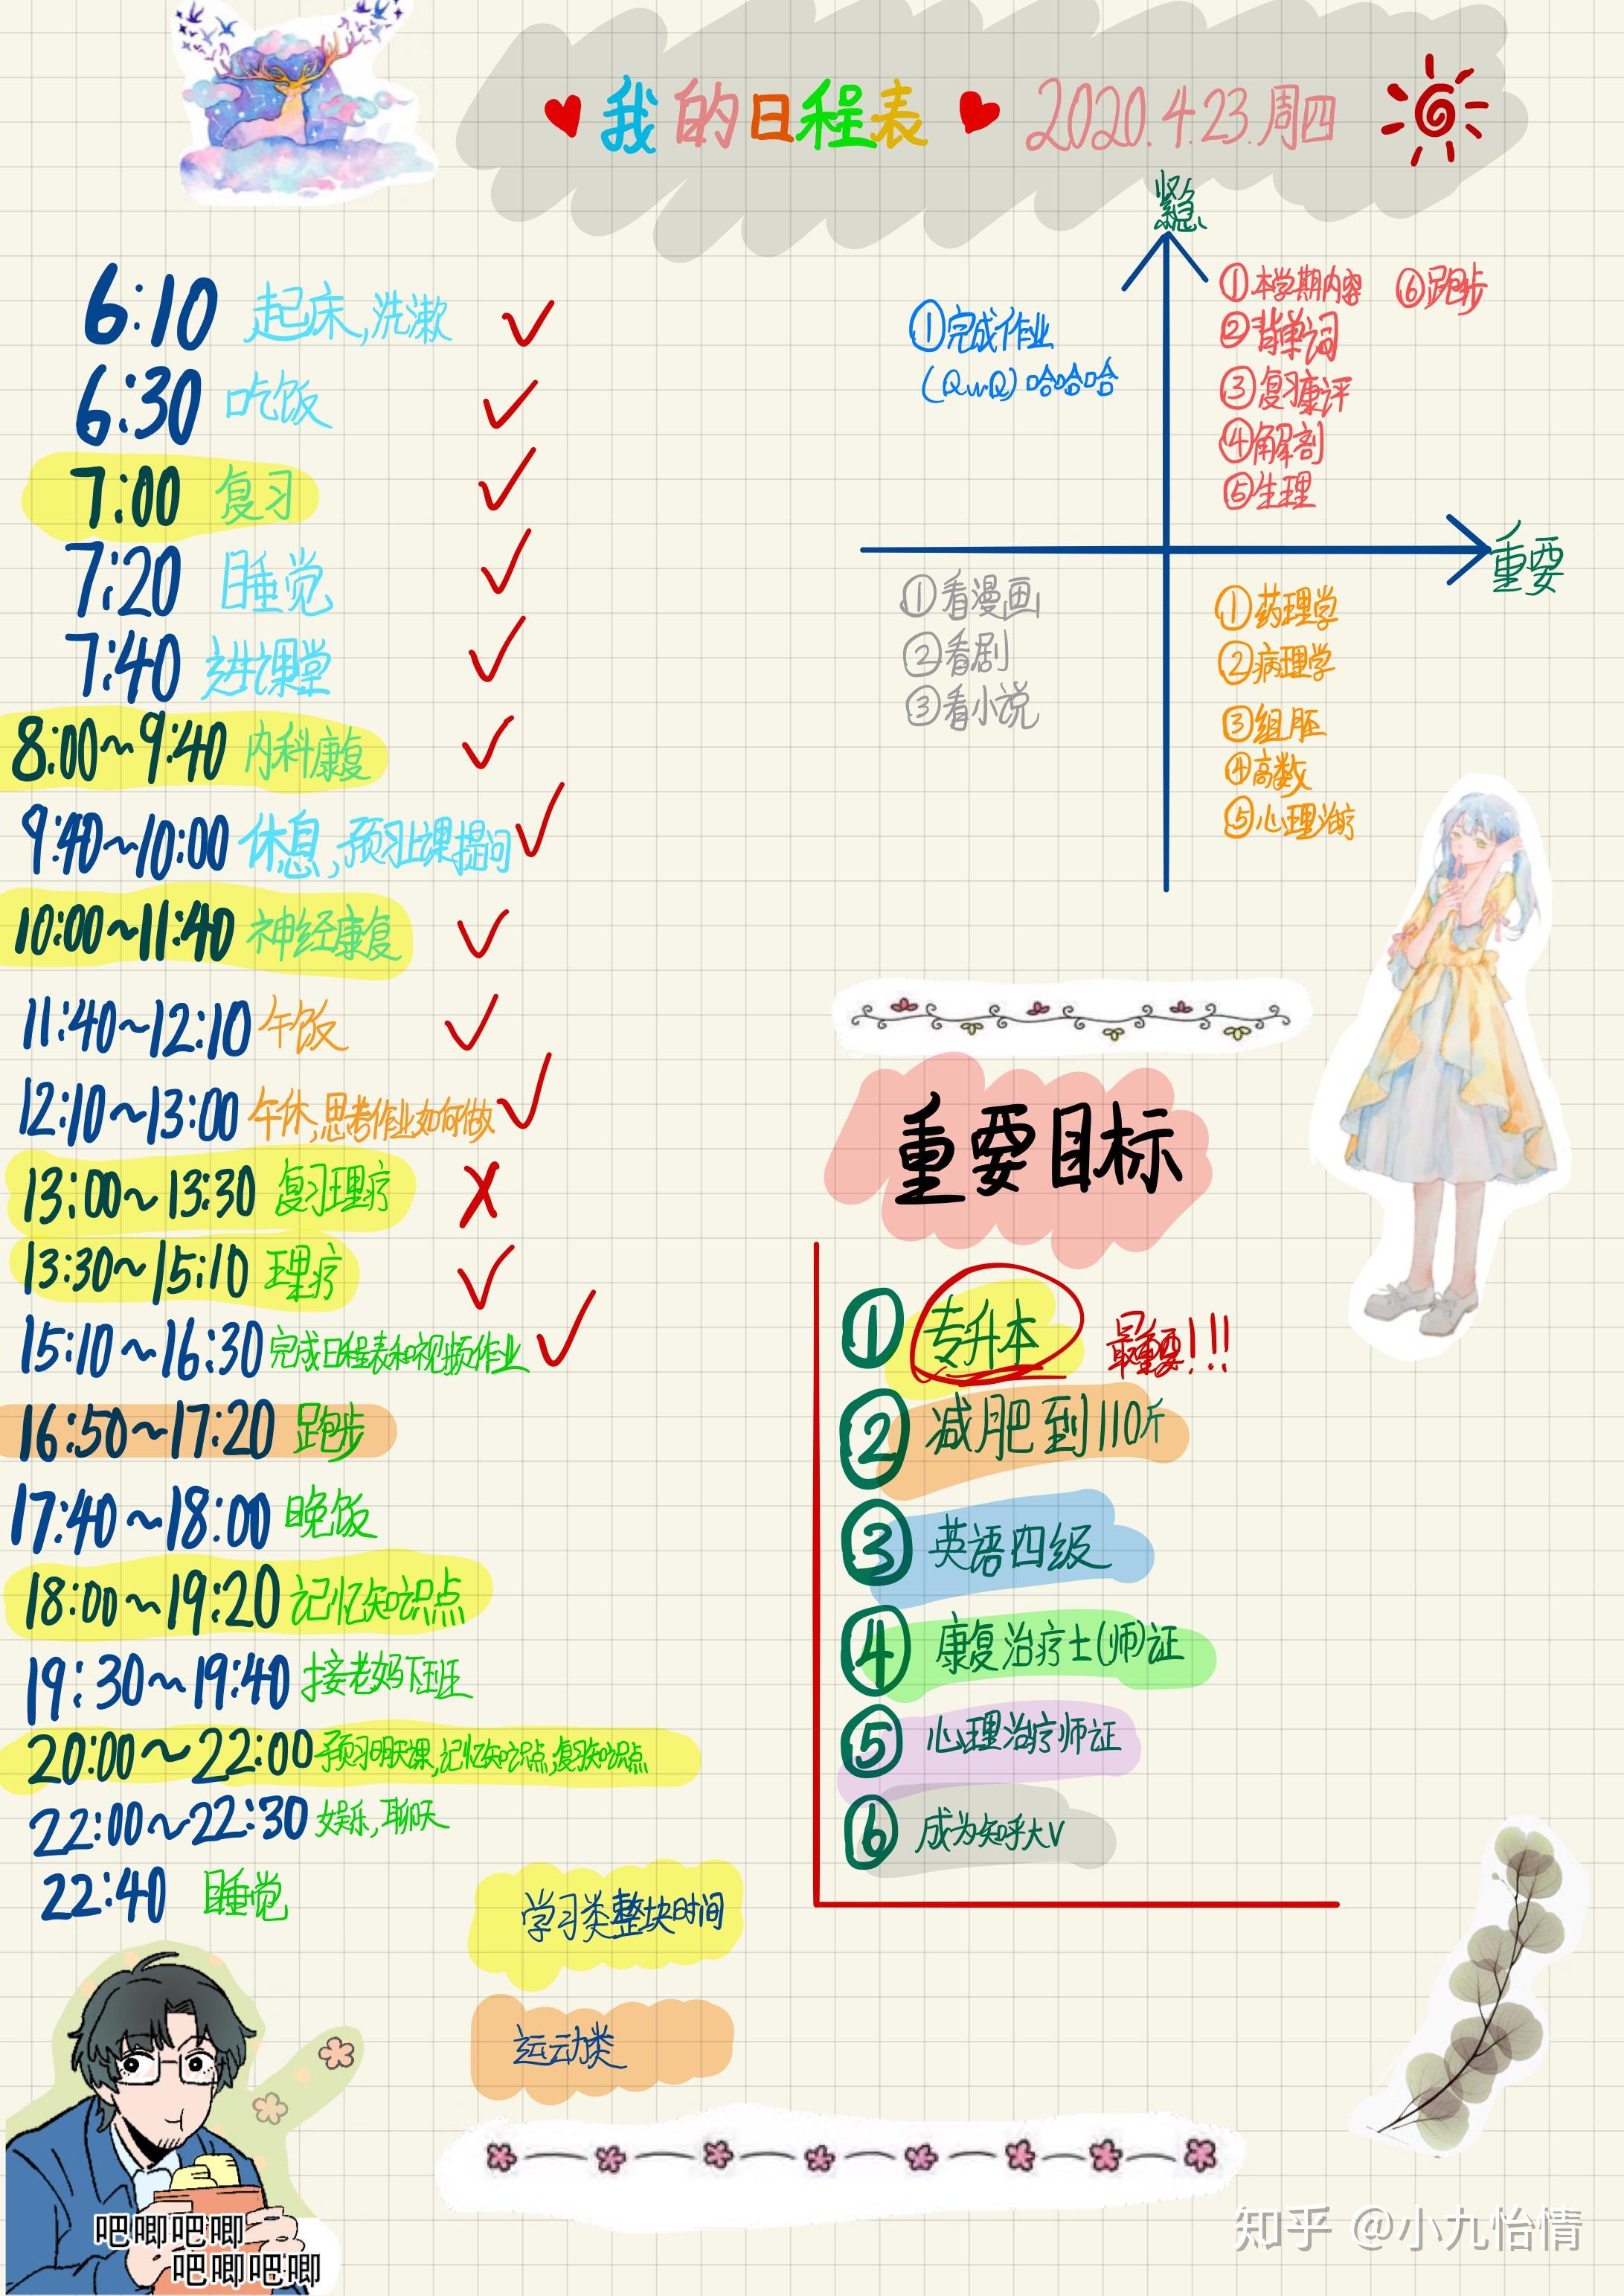 我的日程表 2020.4.23.周四
6:10 起床,洗漱
6:30 吃饭
7:00 复习
7:20 睡觉
7:40 进课堂
8:00~9:40 内科康复
9:40~10:00 休息,预习上课提问
10:00~11:40 神经康复
11:40~12:10 午饭
12:10~13:00 午休,思考作业如何做
13:00~13:30 复习理疗
13:30~15:10 理疗
15:10~16:30 完成日程表和视频作业
16:50~17:20 跑步
17:40~18:00 晚饭
18:00~19:20 记忆知识点
19:30~19:40 接老妈下班
20:00~22:00 预习明天课,记忆知识点,复习知识点
22:00~22:30 娱乐,聊天
22:40 睡觉
学习类整块时间
运动类
紧急
重要
①完成作业
(QwQ)哈哈哈
①本学期内容 ⑥跑步
②背单词
③复习康评
④解剖
⑤生理
①看漫画
②看剧
③看小说
①药理学
②病理学
③组胚
④高数
⑤心理治疗
重要目标
①专升本 最重要!!!
②减肥到110斤
③英语四级
④康复治疗士(师)证
⑤心理治疗师证
⑥成为知乎大V
吧唧吧唧
吧唧吧唧
知乎 @小九怡情